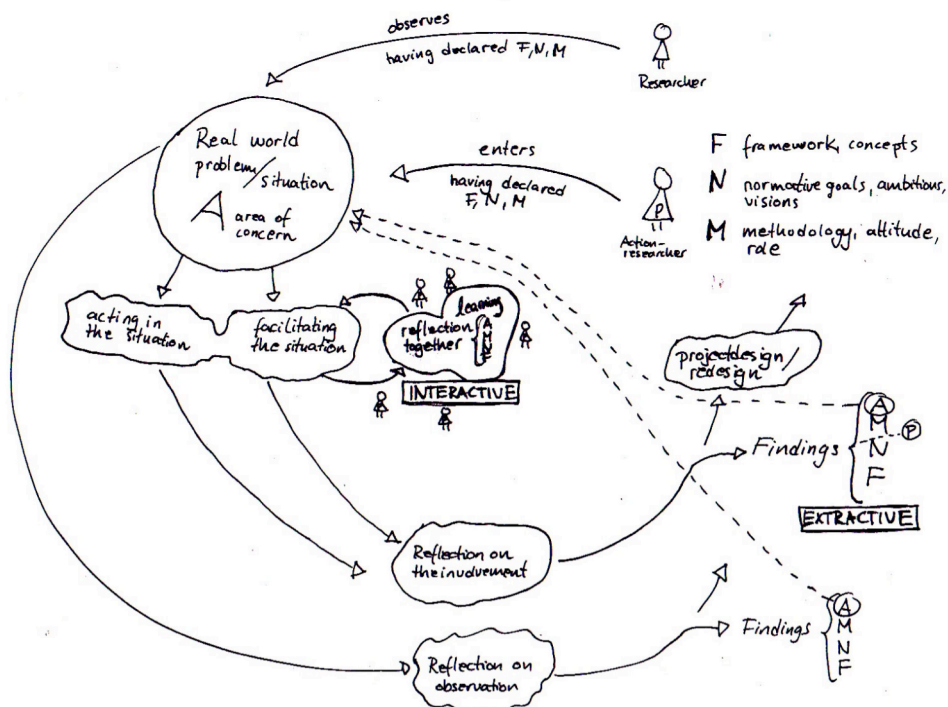 observes
having declared F, N, M
Researcher
Real world
problem/
situation
A area of
concern
enters
having declared
F, N, M
P
Action-
researcher
F framework, concepts
N normative goals, ambitions,
visions
M methodology, attitude,
role
acting in
the situation
facilitating
the situation
learning
reflection
together
A
M
N
F
INTERACTIVE
projectdesign/
redesign
Findings
A
M
P
N
F
EXTRACTIVE
Reflection on
the invdvement
Findings
A
M
N
F
Reflection on
observation